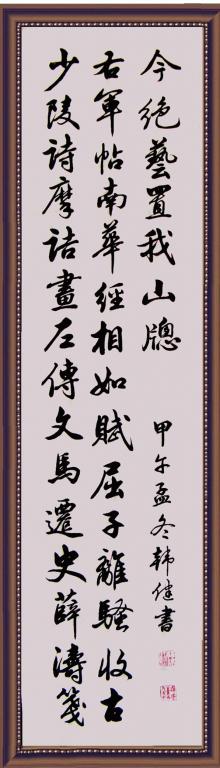 少陵詩摩詰畫左傳文馬遷史薛濤箋
右軍帖南華經相如賦屈子離騷收古
今絕藝置我山牕
甲午孟冬韩健書